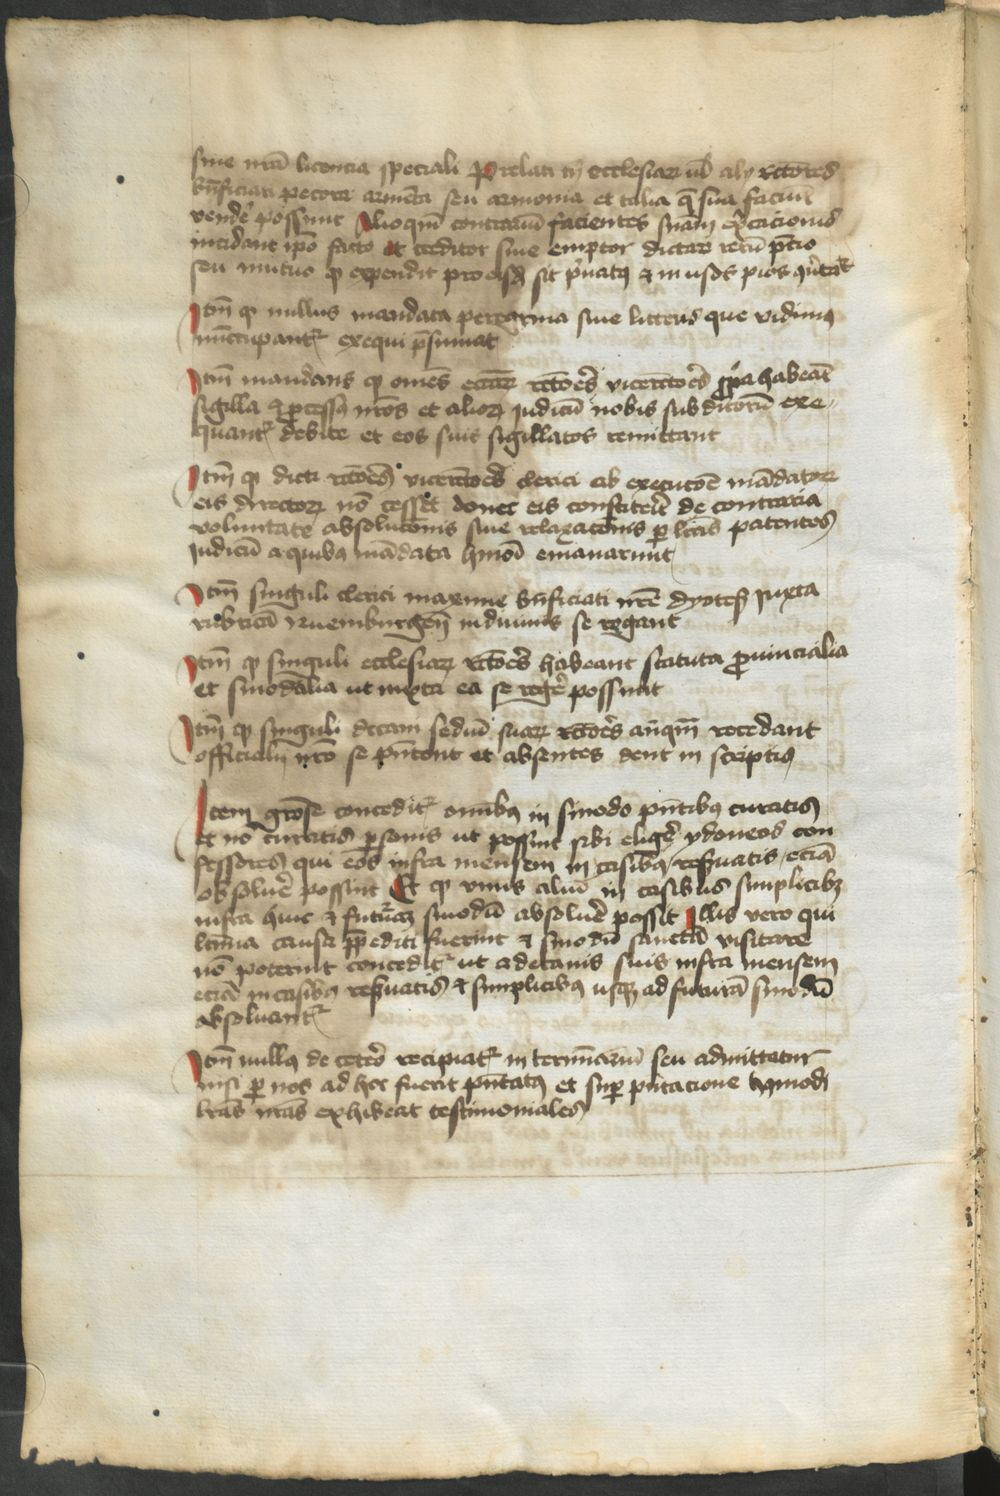 sine nrā licencia speciali Prelati tn̄ ecclesiarꝝ ul̄ alij rctores
bn̄ficiati pecora armēta seu armonia et talia que sua faciūt
vendere possunt Alioquin contrariū facientes snīam excōicacionis
incidant ipō facto et creditor siue emptor dictarꝝ rerū p̄cio
seu mutuo qd expendit pro eisdē sit pͥuatꝰ ⁊ in usus pios
Itm̄ qd nullus mandata peregrina siue litteras que vidimus
nūccupantᷣ exequi p̄sumat
Itm̄ mandamꝰ qd om̄es ecciarꝝ rctores vicerctores ꝓpria habeāt
sigilla ⁊ ꝓcessꝰ nr̄os et aliorꝝ Judicū nobis subditorū exe-
quantᷣ debite et eos suis sigillatos remittant
Itm̄ qd dicti rctores vicerctores clerici ab executōe mādatorꝝ
eis directorꝝ nō cessēt donec eis constiterit de contraria
voluntate absolutōnis siue relaxacōnis ꝑ lrās patentes
Judicū a quibꝰ mādata hmōi emanarunt
Itm̄ singuli clerici maxime bn̄ficiati nr̄e dyoces̄ Juxta
rubricā Nuemburgen̄ in diuinis se regant
Itm̄ qd singuli ecclesiarꝝ rctores habeant statuta ꝓuincialia
et sinodalia ut iuxta ea se reḡe possint
Itm̄ qd singuli decani sediū suarꝝ rctores anteqm̄ recedant
officiali nr̄o se p̄ntent et absentes dent in scriptis
Item gr̄ose conceditᷣ om̄ibꝰ in sinodo pn̄tibꝰ curatis
et nō curatis ꝑsonis ut possint sibi eliḡe ydoneos con
fessores qui eos infra mensem in casibꝰ reseruatis eciā
absoluere possint Et qd vnus aliū in casibus simplicibꝫ
infra hinc ⁊ futurā sinodū absoluere possit Illis vero qui
ltīma causa p̄pediti fuerint ⁊ sinodū sanctā visitare
nō poterint conceditᷣ ut a decanis suis infra mensem
eciā in casibꝰ reseruatis ⁊ simplicibꝰ usqꝫ ad futurā sinodū
absoluantᷣ
Itm̄ nullꝰ de cetero recipiatᷣ in terminariū seu admittetur
nisi ꝑ nos ad hoc fuerit pn̄tatꝰ et suꝑ pn̄tacione hmodi
lrās nrās exhibeat testimoniales